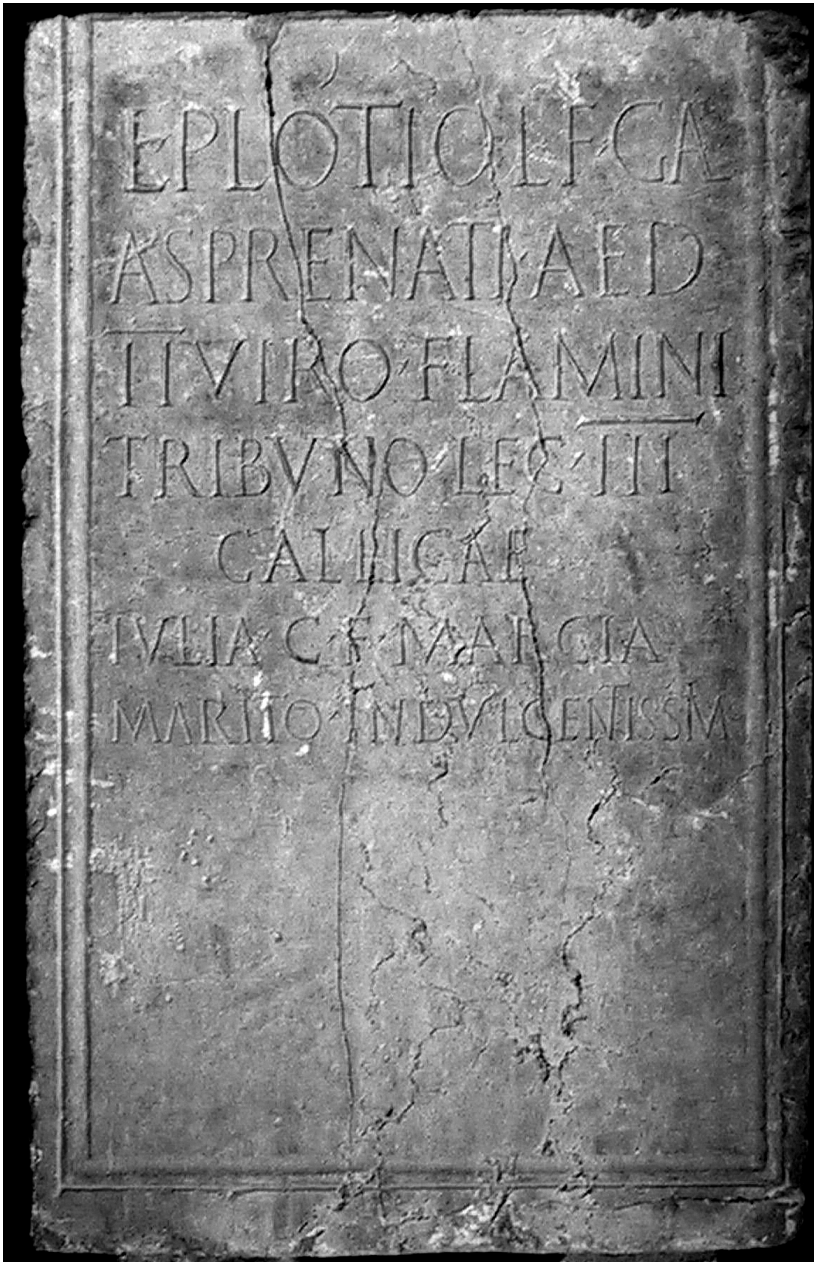 E PLOTIO·L·F·GA
ASPRENATI·AED
IIVIRO·FLAMINI
TRIBVNO·LEG·III
GALLICAE
IVLIA·C·F·MARCIA
MARITO·INDVLGENTISSM